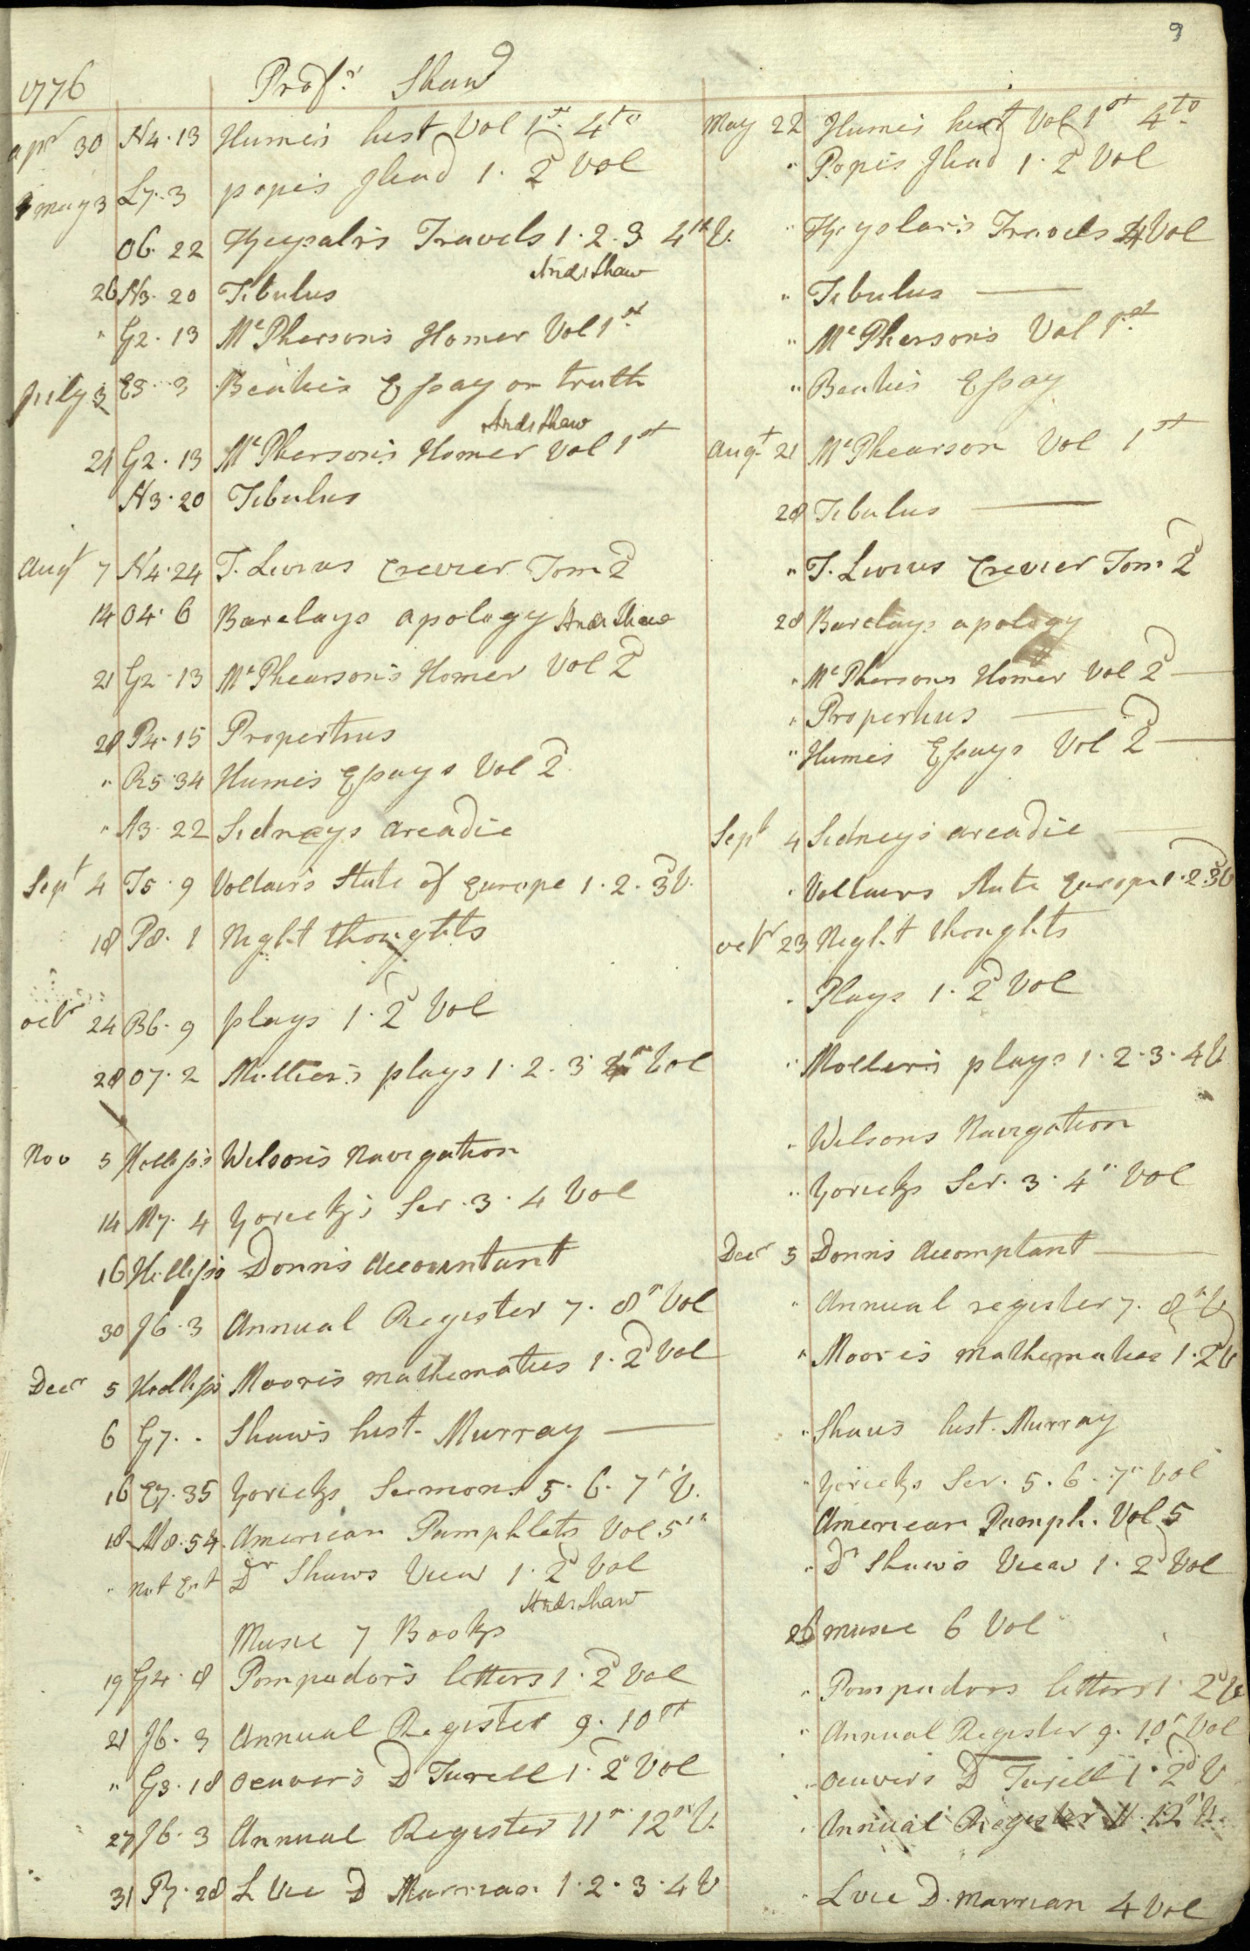 9
1776 Profr Shaw
apr 30 N4.13 Hume's hist Vol 1st. 4to May 22 Hume's hist Vol 1st 4to
may 3 L7.3 pope's Iliad 1. 2d Vol " Pope's Iliad 1. 2d Vol
O6.22 Keysalr's Travels 1.2.3 4th V. " Keyslar's Travels 4 Vol
Andr Shaw
26 N3.20 Tibulus " Tibulus
" G2.13 McPherson's Homer Vol 1st " McPherson's Vol 1st
July 3 E3.3 Beatie's Essay on truth " Beatie's Essay
Andr Shaw
21 G2.13 McPherson's Homer Vol 1st Augt 21 McPhearson Vol 1st
N3.20 Tibulus 28 Tibulus
Augt 7 N4.24 T. Livius Crevier Tom 2d " T. Livius Crevier Tom. 2d
14 O4.6 Barclays apology Andr Shaw 28 Barclays apology
21 G2.13 McPhearson's Homer Vol 2d " McPhersons Homer Vol 2d
28 P4.15 Propertius " Propertius
" R5.34 Hume's Essays Vol 2d " Hume's Essays Vol 2d
" A3.22 Sidneys arcadie Sept 4 Sidneys arcadie
Sept 4 T5.9 Voltair's State of Europe 1.2.3d V. " Voltairs State Europe 1.2.3d V
18 P8.1 Night thoughts octr 23 Night thoughts
octr 24 B6.9 plays 1.2d Vol " Plays 1.2d Vol
28 O7.2 Mollier's plays 1.2.3 4th Vol " Moller's plays 1.2.3.4 V
Nov 5 Hollisp's Wilson's Navigation " Wilsons Navigation
14 M7.4 Yorick's Ser. 3. 4 Vol " Yoricks Ser. 3. 4th Vol
16 Hollisp's Donn's Accountant Decr 5 Donn's Accomptant
30 J6.3 Annual Register 7. 8th Vol " Annual register 7. 8th V
Decr 5 Hollisp's Moore's mathematics 1.2d Vol " Moore's mathematics 1.2d V
6 G7.. Shaw's hist. Murray " Shaws hist. Murray
16 E7.35 Yoricks Sermons 5.6.7th V. " Yoricks Ser. 5.6.7th Vol
18 M8.54 American Pamphlets Vol 5th American Pamph. Vol 5
" Not Ent Dr Shaws View 1.2d Vol " Dr Shaw's View 1.2d Vol
Andr Shaw
Music 7 Books 26 music 6 Vol
19 G4.8 Pompador's letters 1.2d Vol " Pompadors letters 1.2d V
21 J6.3 Annual Register 9.10th " Annual Register 9.10th Vol
" G3.18 Oeuver's D Turell 1.2d Vol " Oeuver's D Turell 1.2d V
27 J6.3 Annual Register 11th 12th V. " Annual Register 11.12th V.
31 P7.28 L Vie D Marrian 1.2.3.4 V " L vie D. Marrian 4 Vol